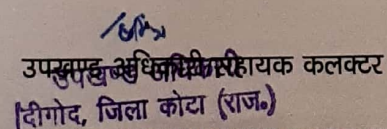 उपखण्ड अधिकारी सहायक कलक्टर
दीगोद, जिला कोटा (राज॰)